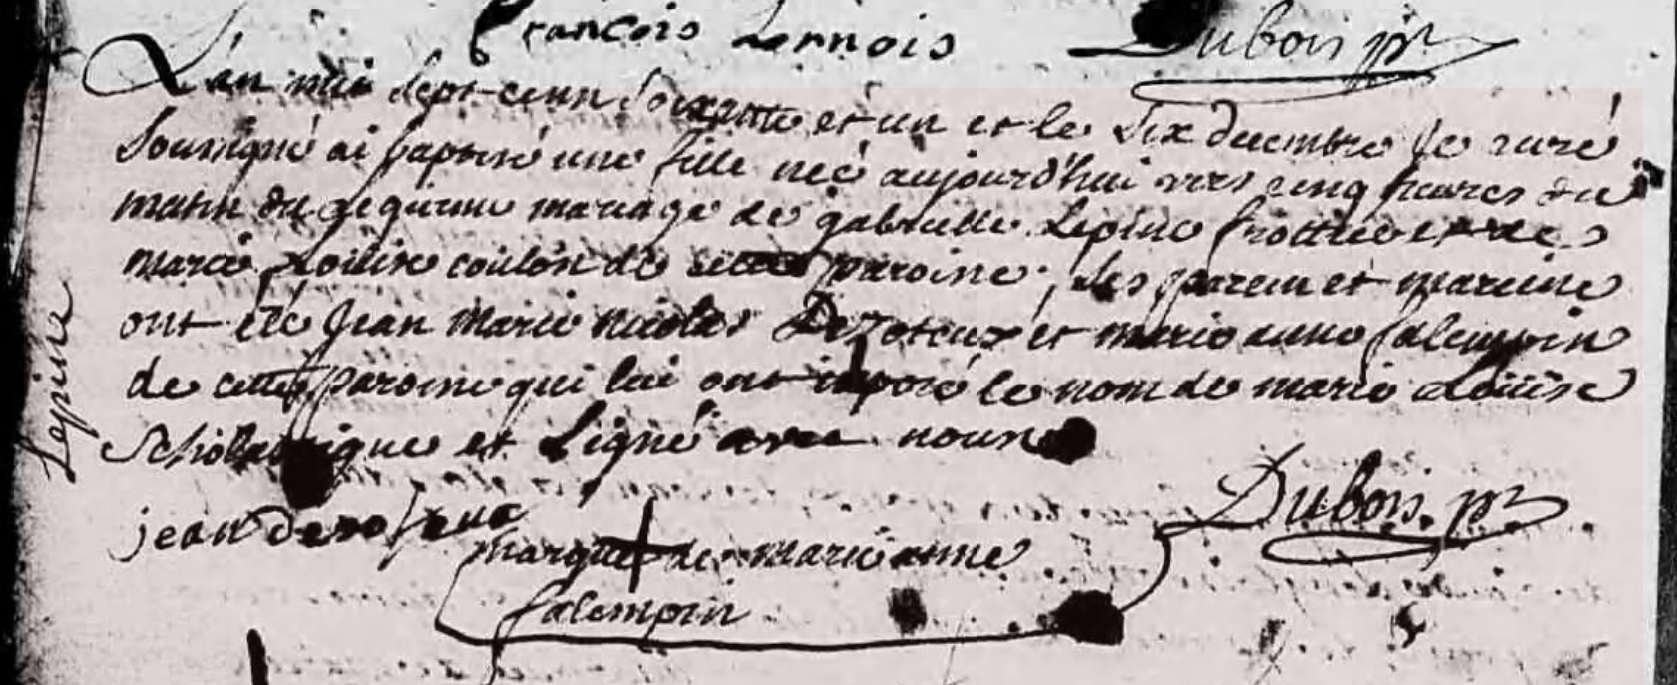 François Lennois Dubois ptr
L'an mil sept cenn soixantte et un et le six decembre Je curé
soussigné ai baptisé une fille neé aujourd'hui vers cinq heures du
matin du legitime mariage de gabrielle Lepine frottier et de
marie Loüise coulon de cette paroisse, les parein et mareine
ont été Jean marie nicolas Dezoteux et marie anne falempin
de cette paroisse qui lui ont imposé le nom de marie Loüise
Scholastique et signé avec nous
jean
Dubois. ptr
marque de marie anne
falempin
Lepine